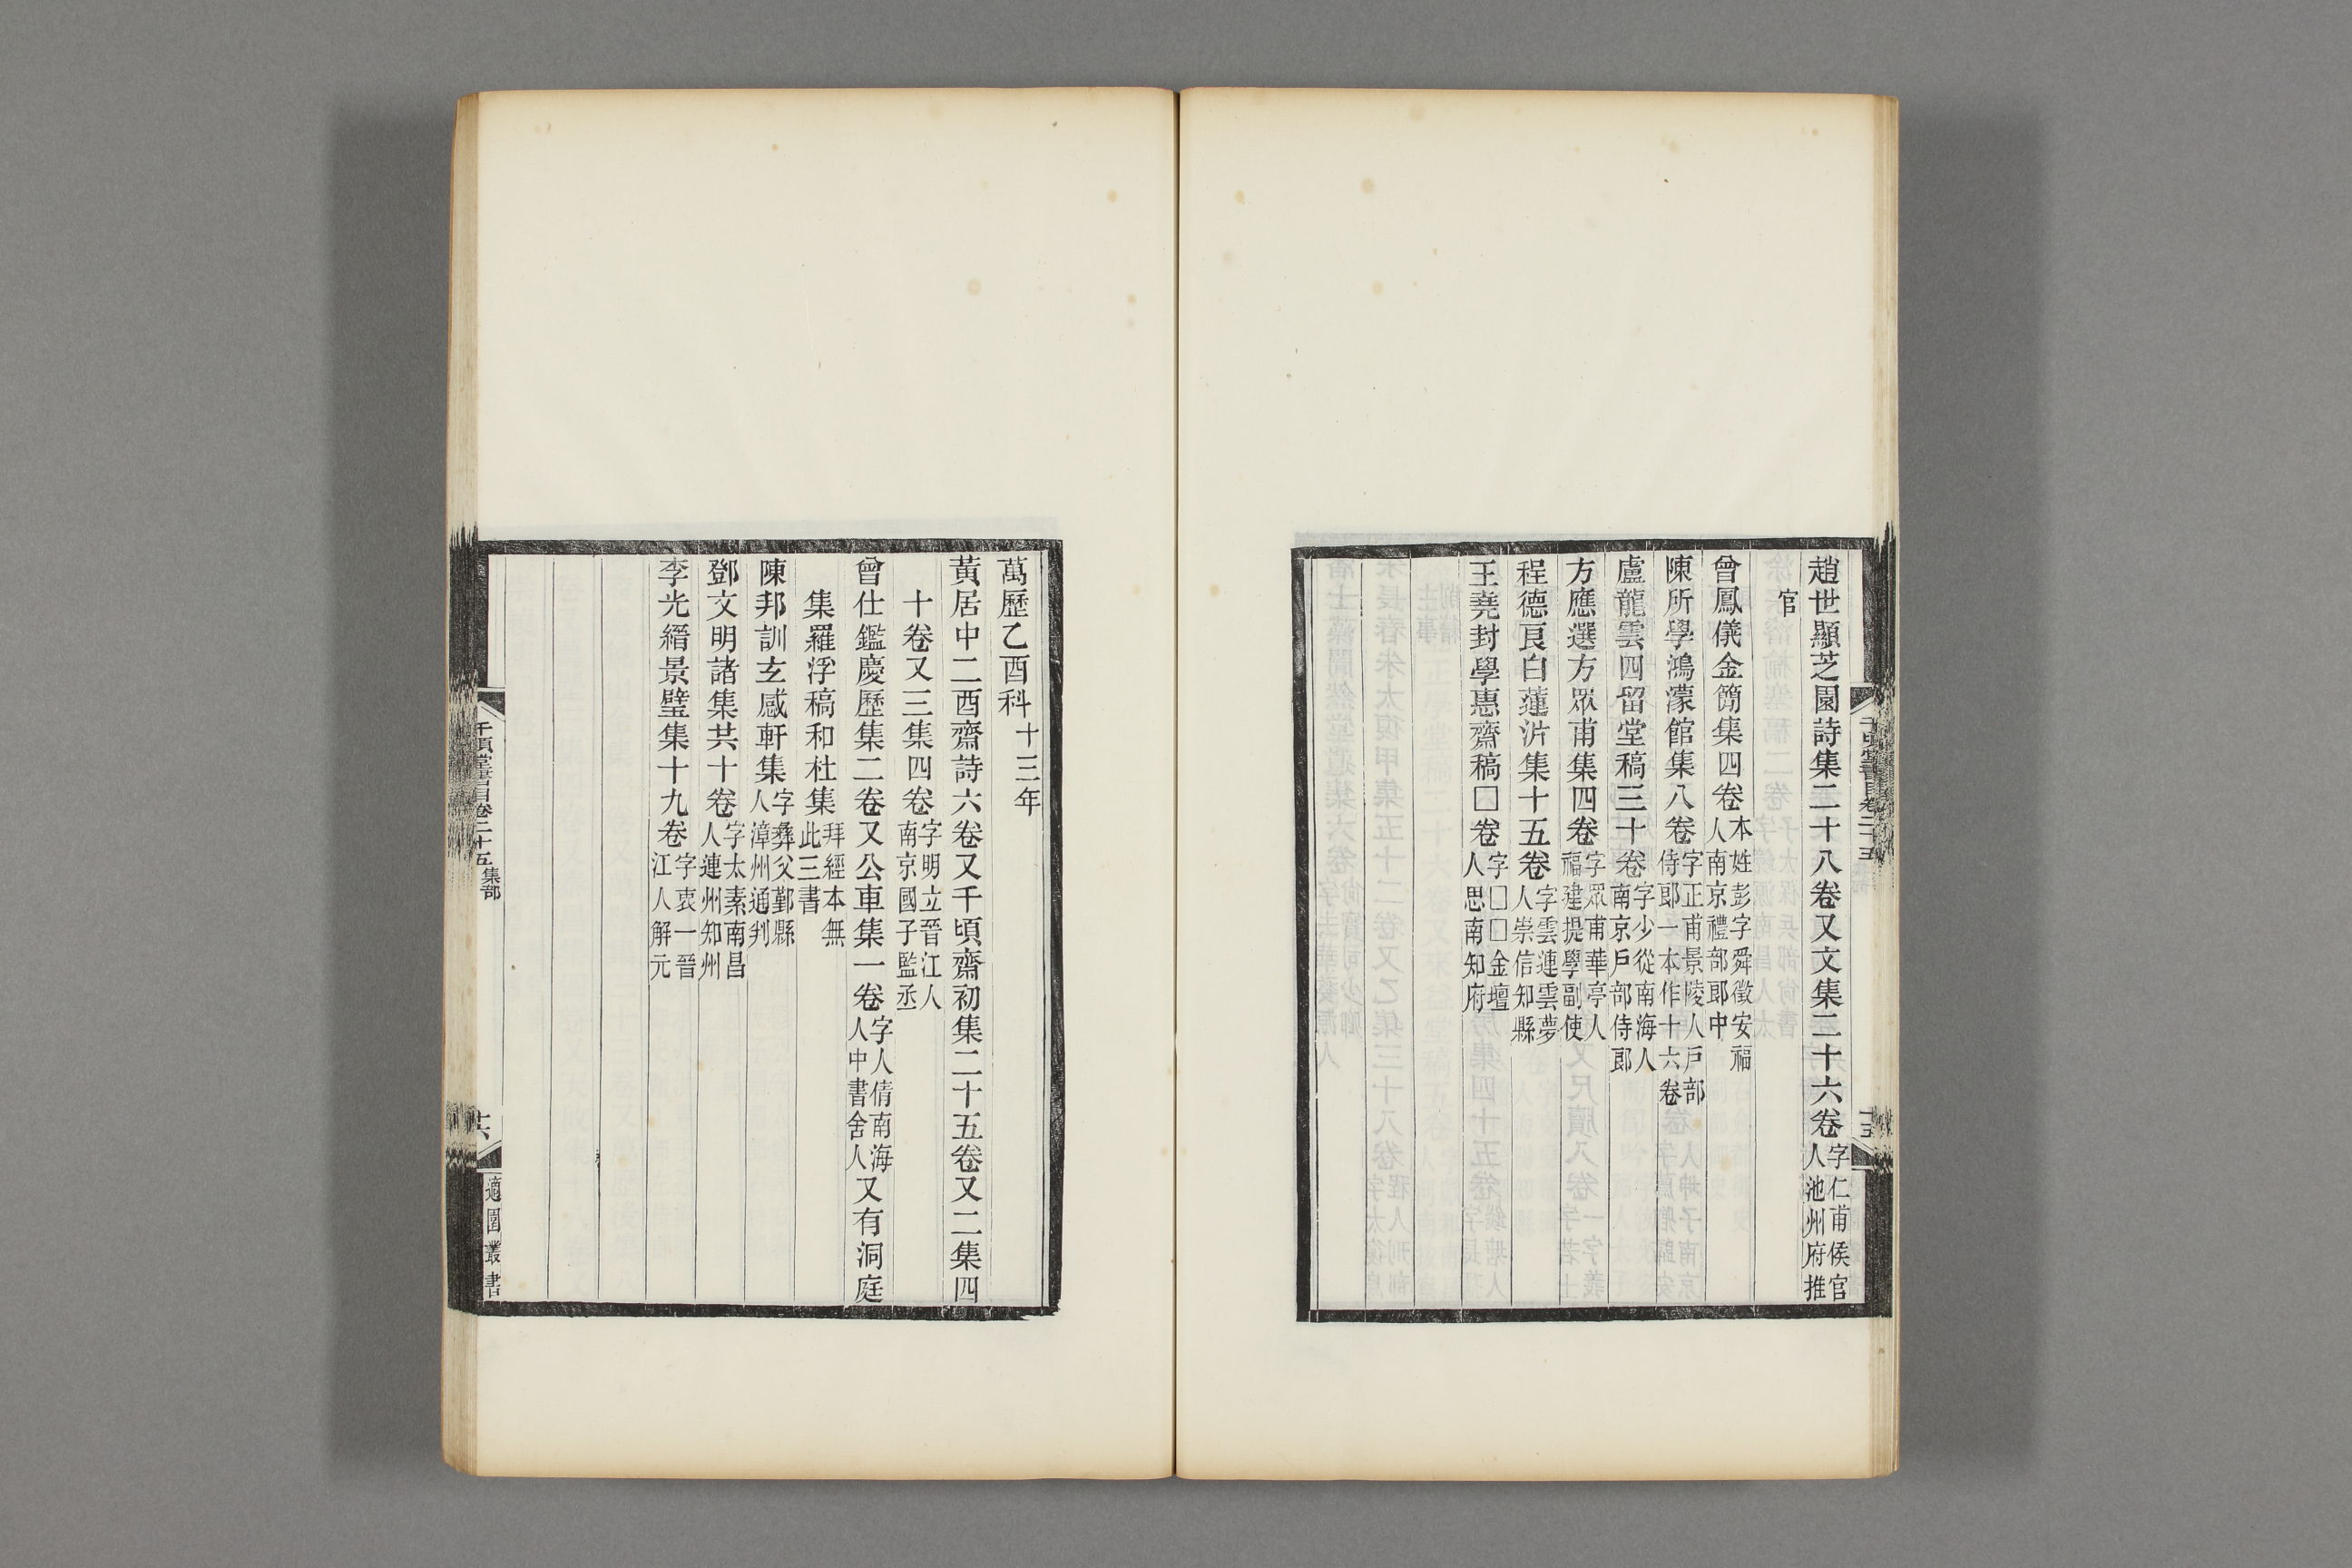 趙世顯芝園詩集二十八卷又文集二十六卷字仁甫侯官人池州府推
官
曾鳳儀金簡集四卷本姓彭字舜徵安福人南京禮部郎中
陳所學鴻濛館集八卷字正甫景陵人戸部侍郎一本作十六卷
盧龍雲四留堂稿三十卷字少從南海人南京戸部侍郎
方應選方眾甫集四卷字眾甫華亭人福建提學副使
程德良白蓮沜集十五卷字雲連雲夢人崇信知縣
王堯封學惠齋稿□卷字□□金壇人思南知府
千頃堂書目卷二十五
十五
萬歷乙酉科十三年
黃居中二酉齋詩六卷又千頃齋初集二十五卷又二集四
十卷又三集四卷字明立晉江人南京國子監丞
曾仕鑑慶歷集二卷又公車集一卷字人倩南海人中書舍人又有洞庭
集羅浮稿和杜集拜經本無此三書
陳邦訓玄感軒集字彝父鄞縣人漳州通判
鄧文明諸集共十卷字太素南昌人連州知州
李光縉景璧集十九卷字衷一晉江人解元
千頃堂書目卷二十五 集部
十六
適園叢書